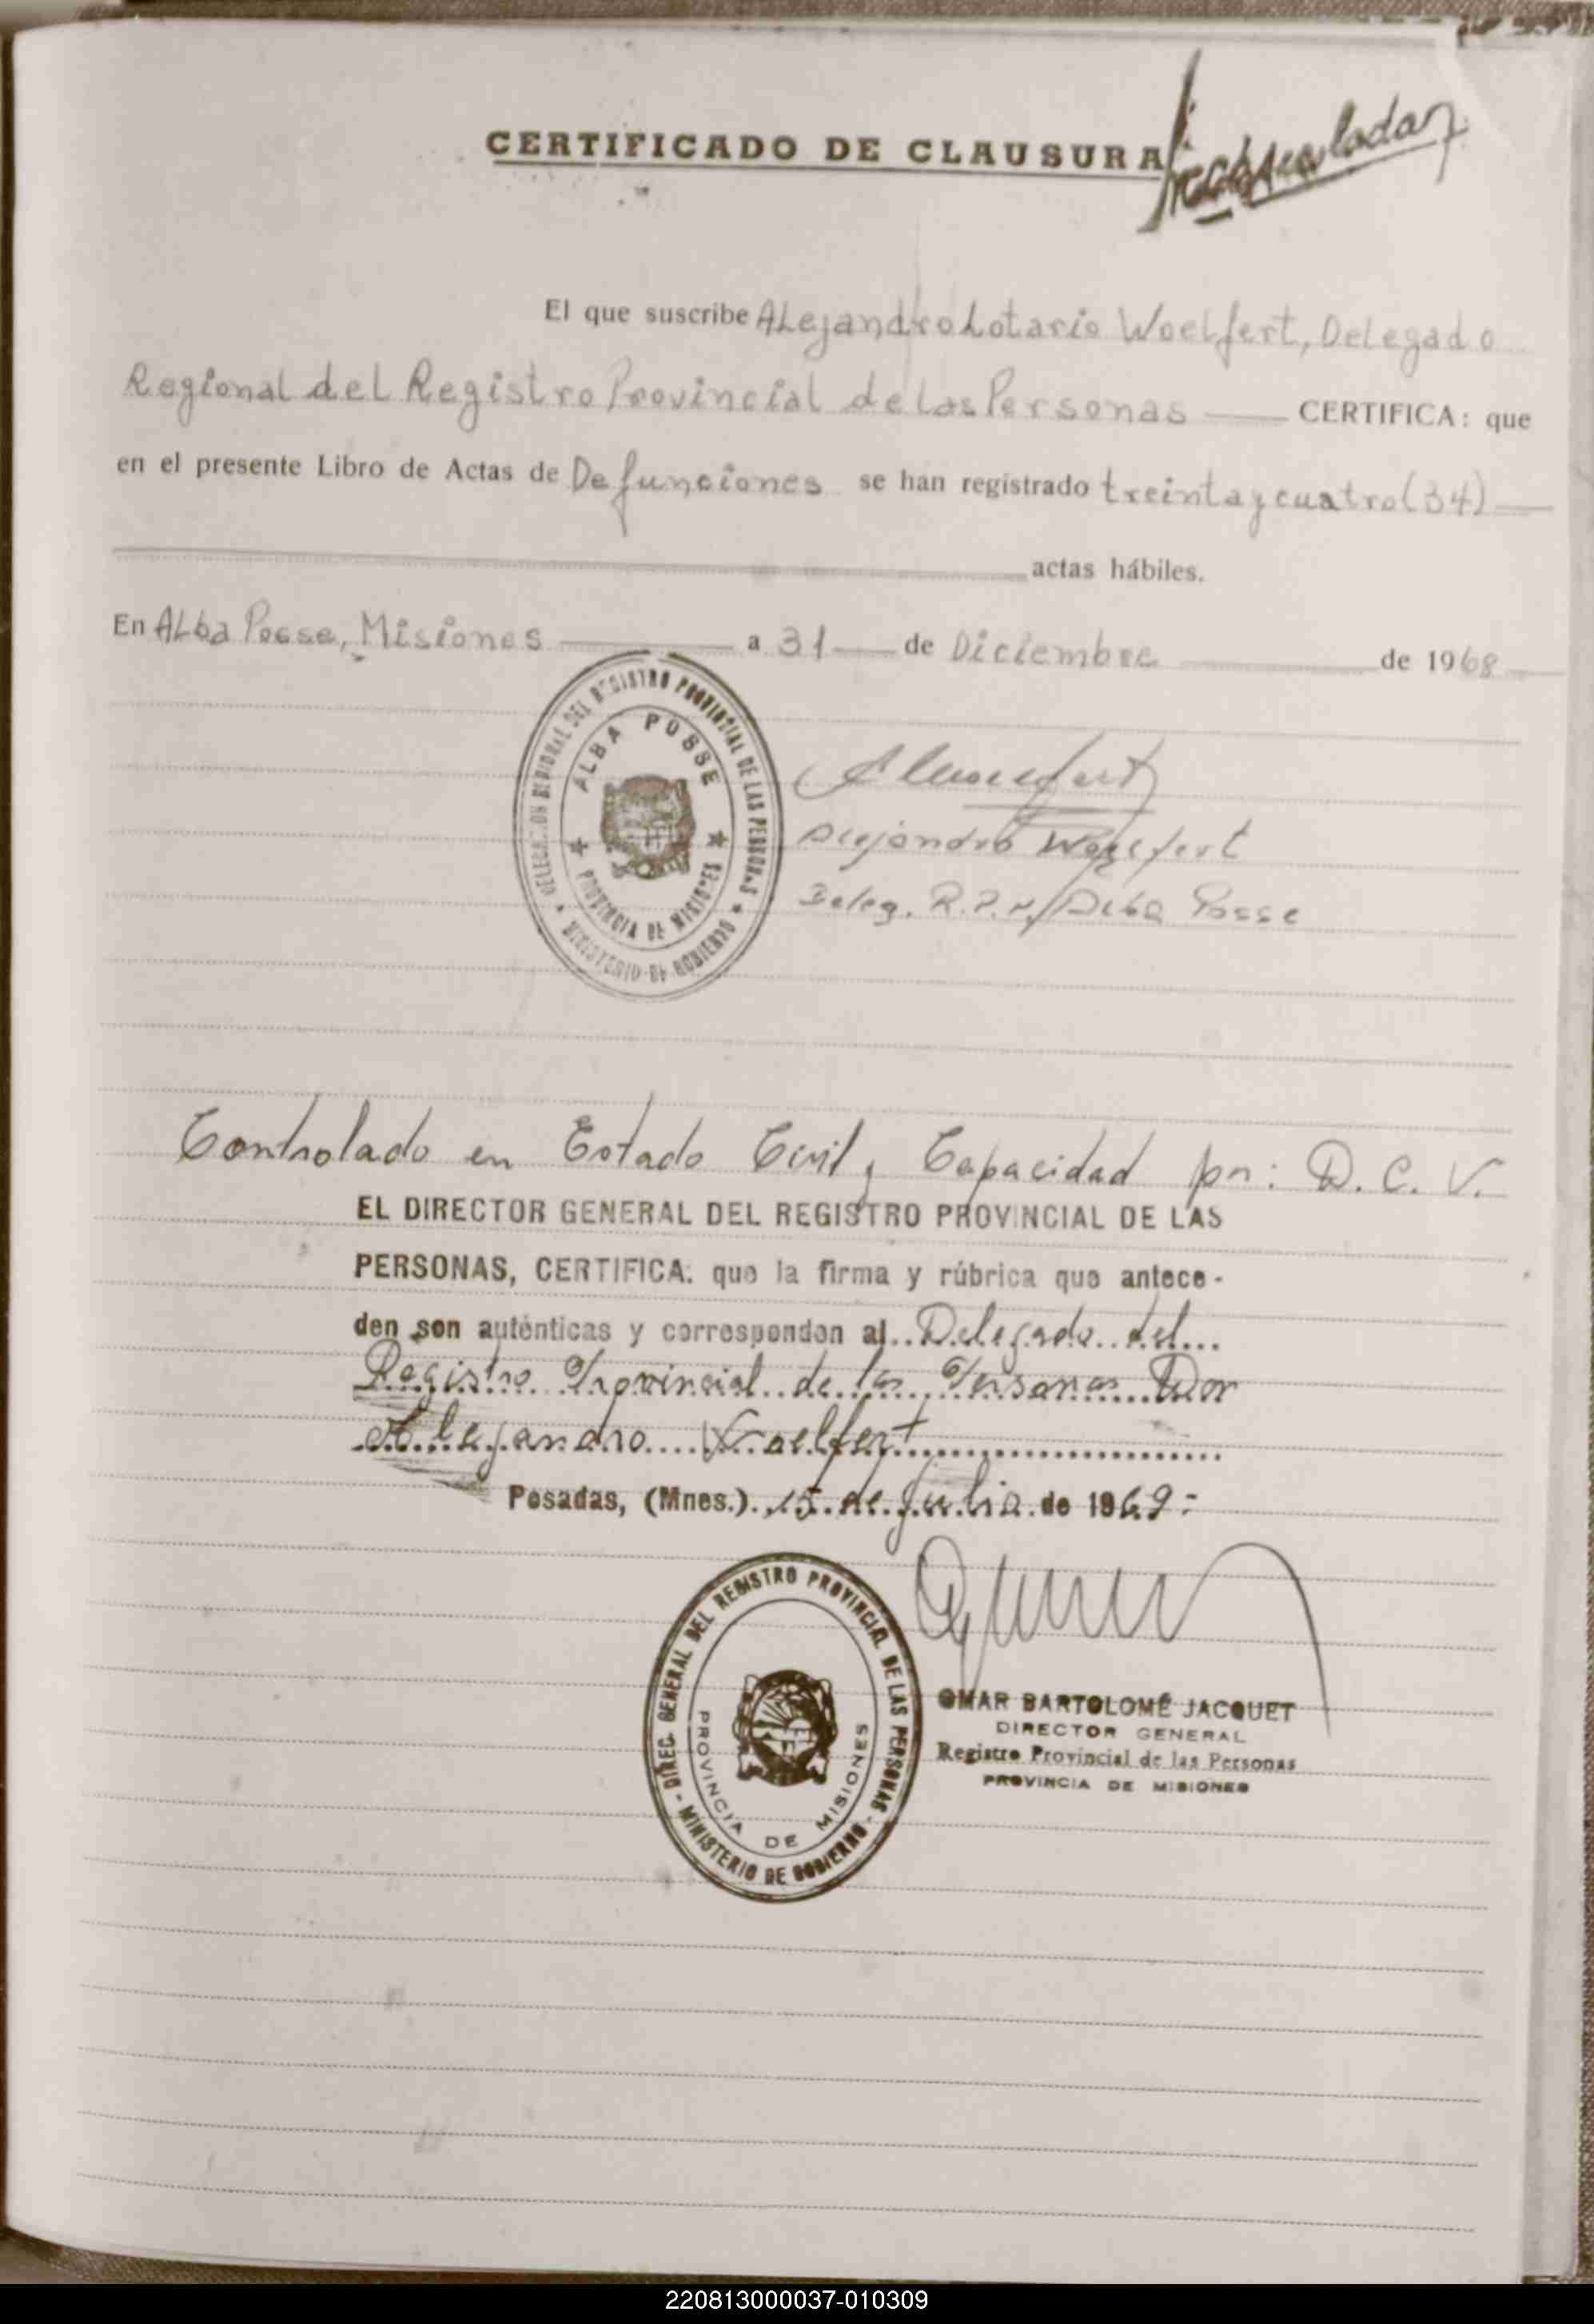 CERTIFICADO DE CLAUSURA
El que suscribe ALejandro Lotario Woelfert, Delegado
Regional del Registro Provincial de Las Personas CERTIFICA: que
en el presente Libro de Actas de Defunciones se han registrado treinta y cuatro (34)
actas hábiles.
En ALba Posse, Misiones a 31 de Diciembre de 1968
DELEGACION REGIONAL DEL REGISTRO PROVINCIAL DE LAS PERSONAS
MINISTERIO DE GOBIERNO
ALBA POSSE
PROVINCIA DE MISIONES
Alejandro Woelfert
Deleg. R.P.P./Alba Posse
Controlado en Estado Civil y Capacidad por: D. C. V.
EL DIRECTOR GENERAL DEL REGISTRO PROVINCIAL DE LAS
PERSONAS, CERTIFICA: que la firma y rúbrica que antece-
den son auténticas y corresponden al Delegado del
Registro Provincial de las Personas Don
Alejandro Woelfert
Posadas, (Mnes.) 15 de Julio de 1969
DIREC. GENERAL DEL REGISTRO PROVINCIAL DE LAS PERSONAS - MINISTERIO DE GOBIERNO -
PROVINCIA DE MISIONES
OMAR BARTOLOMÉ JACQUET
DIRECTOR GENERAL
Registro Provincial de las Personas
PROVINCIA DE MISIONES
220813000037-010309